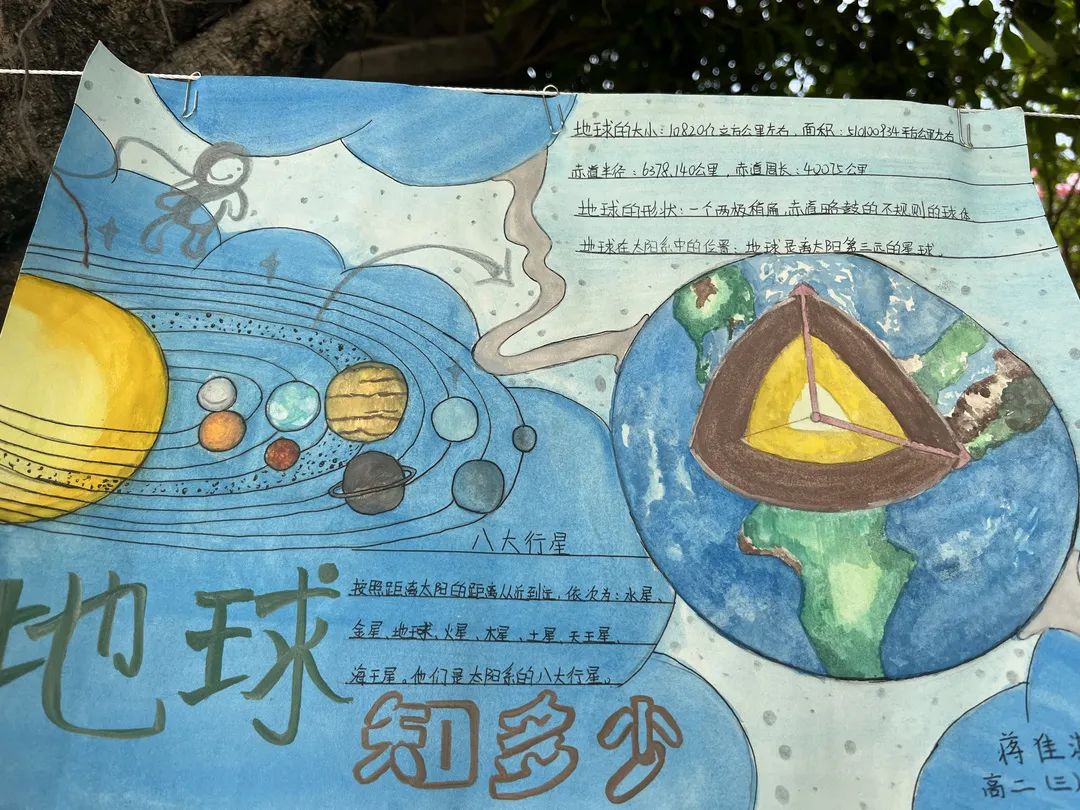 地球的大小：10820亿立方公里左右，面积：510100934平方公里左右
赤道半径：6378.140公里，赤道周长：40075公里
地球的形状：一个两极稍扁，赤道略鼓的不规则的球体
地球在太阳系中的位置：地球是离太阳第三远的星球。
八大行星
按照距离太阳的距离从近到远，依次为：水星、
金星、地球、火星、木星、土星、天王星、
海王星。他们是太阳系的八大行星。
地球
知多少
蒋佳
高二（三）